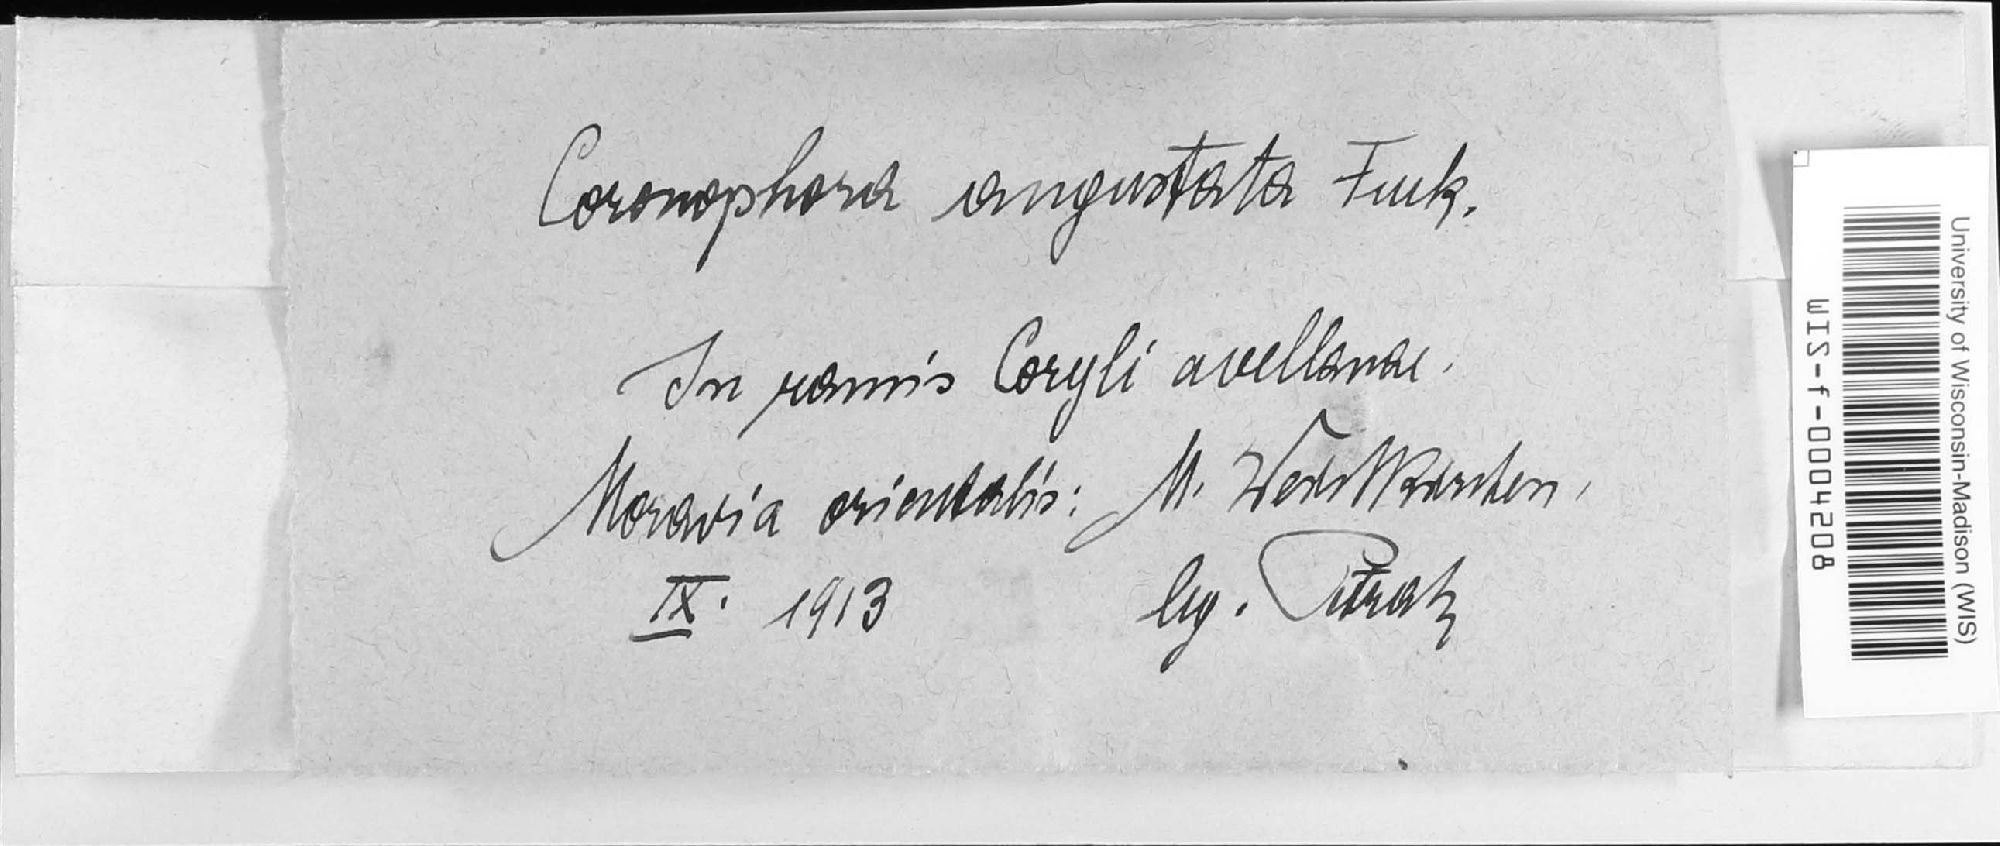 Coronophora angustata Fuck.
In ramis Coryli avellanae.
Moravia orientalis: M. Weisskirchen,
IX. 1913 leg. Petrak
University of Wisconsin-Madison (WIS)
WIS-f-0004208